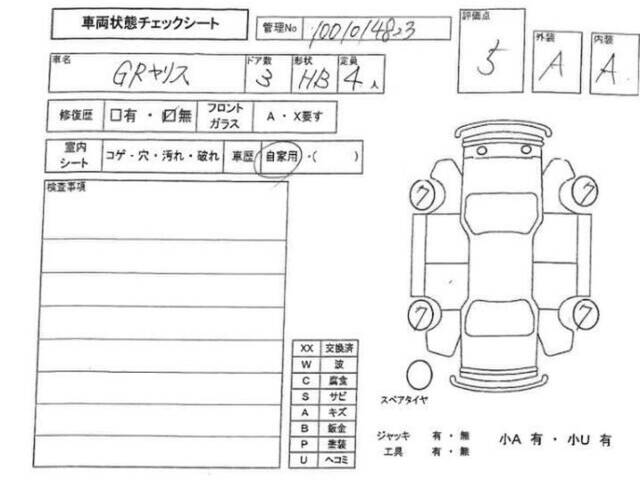 車両状態チェックシート
管理No 100101482-3
評価点 5
外装 A
内装 A
車名 GRヤリス
ドア数 3
形状 HB
定員 4人
修復歴 □有・☑無
フロントガラス A・X要す
室内シート コゲ・穴・汚れ・破れ
車歴 自家用・( )
検査事項
7 7
7 7
XX 交換済
W 波
C 腐食
S サビ
A キズ
B 鈑金
P 塗装
U ヘコミ
スペアタイヤ
ジャッキ 有・無
工具 有・無
小A 有・小U 有